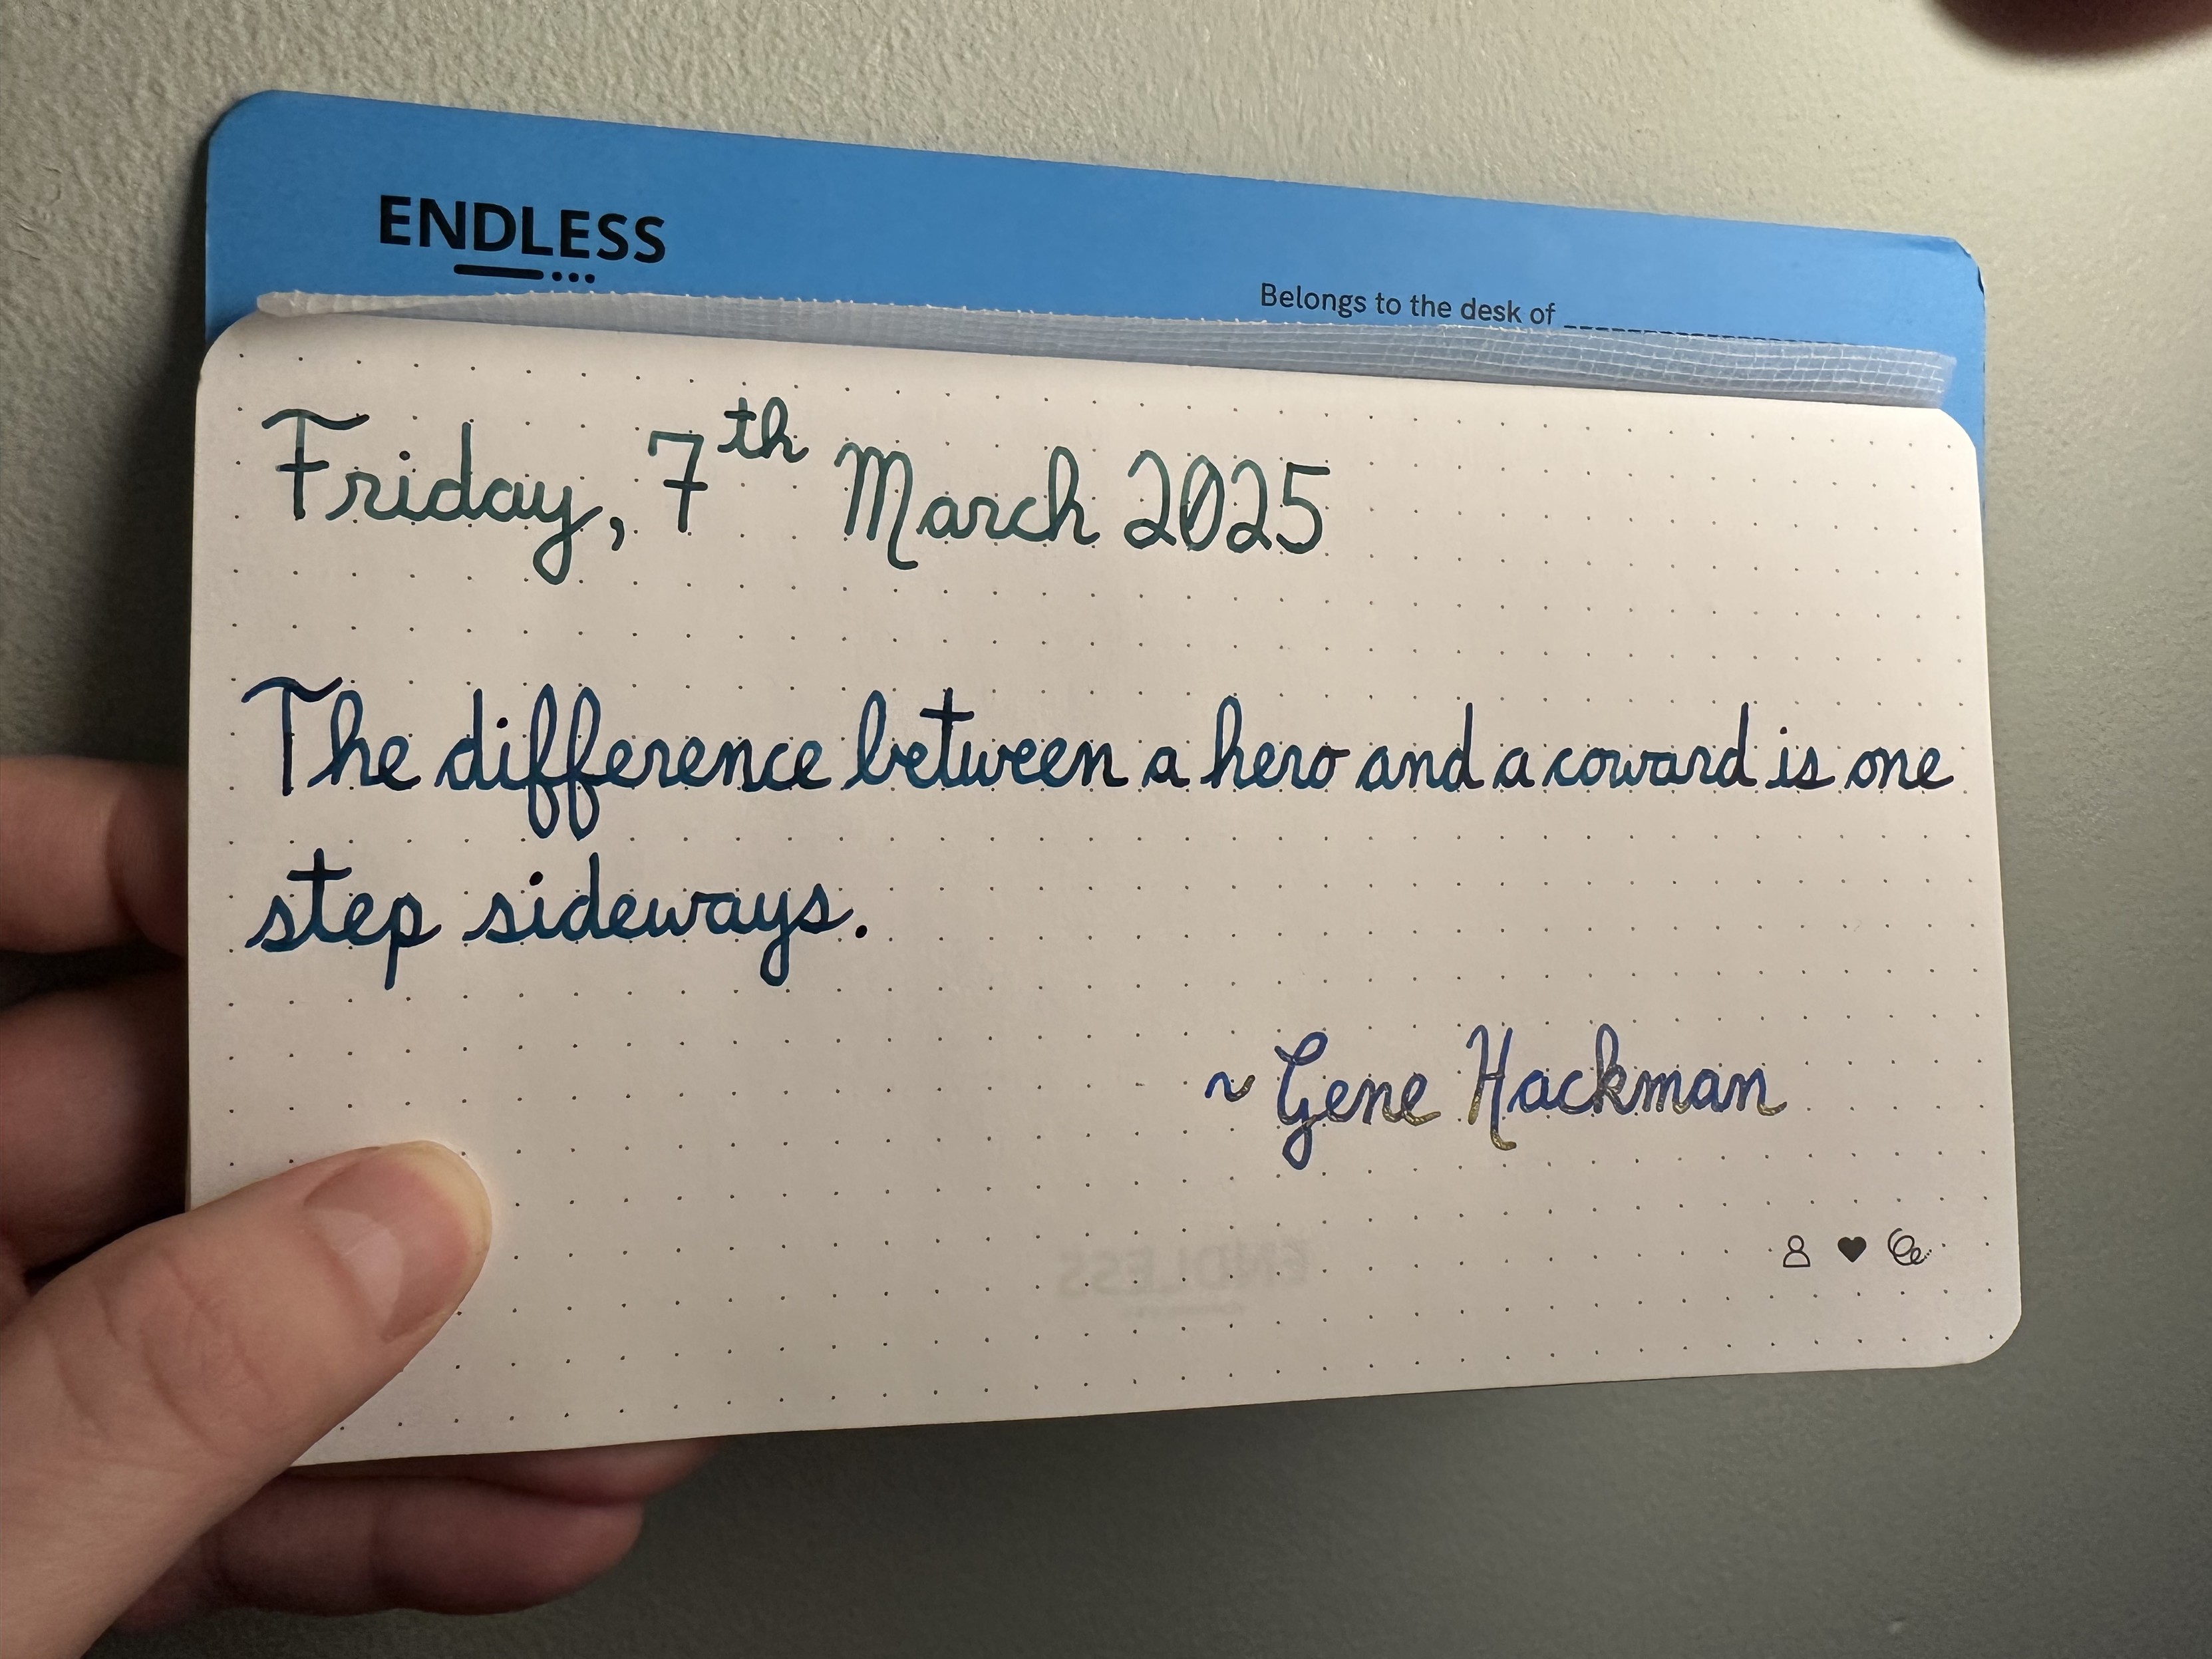 ENDLESS
Belongs to the desk of
Friday, 7th March 2025
The difference between a hero and a coward is one
step sideways.
~ Gene Hackman
ENDLESS